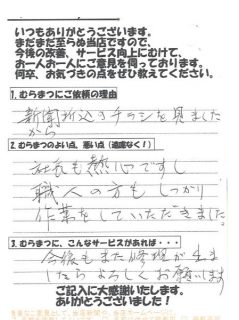 いつもありがとうございます。
まだまだ至らぬ当店ですので、
今後の改善、サービス向上にむけて、
お一人お一人にご意見を伺っております。
何卒、お気づきの点をぜひ教えてください。
1. むらまつにご依頼の理由
新聞折込のチラシを見ました
から
2. むらまつのよい点、悪い点(遠慮なく!)
社長も熱心ですし
職人の方もしっかり
作業をしていただきました。
3. むらまつに、こんなサービスがあれば・・・
今後もまた修理が生ま
したらよろしくお願いします
ご記入に大感謝いたします。
ありがとうございました!